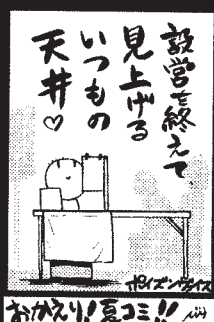 設営を終えて
見上げる
いつもの
天井♡
ポイズンヴイス
おかえり!夏コミ!!